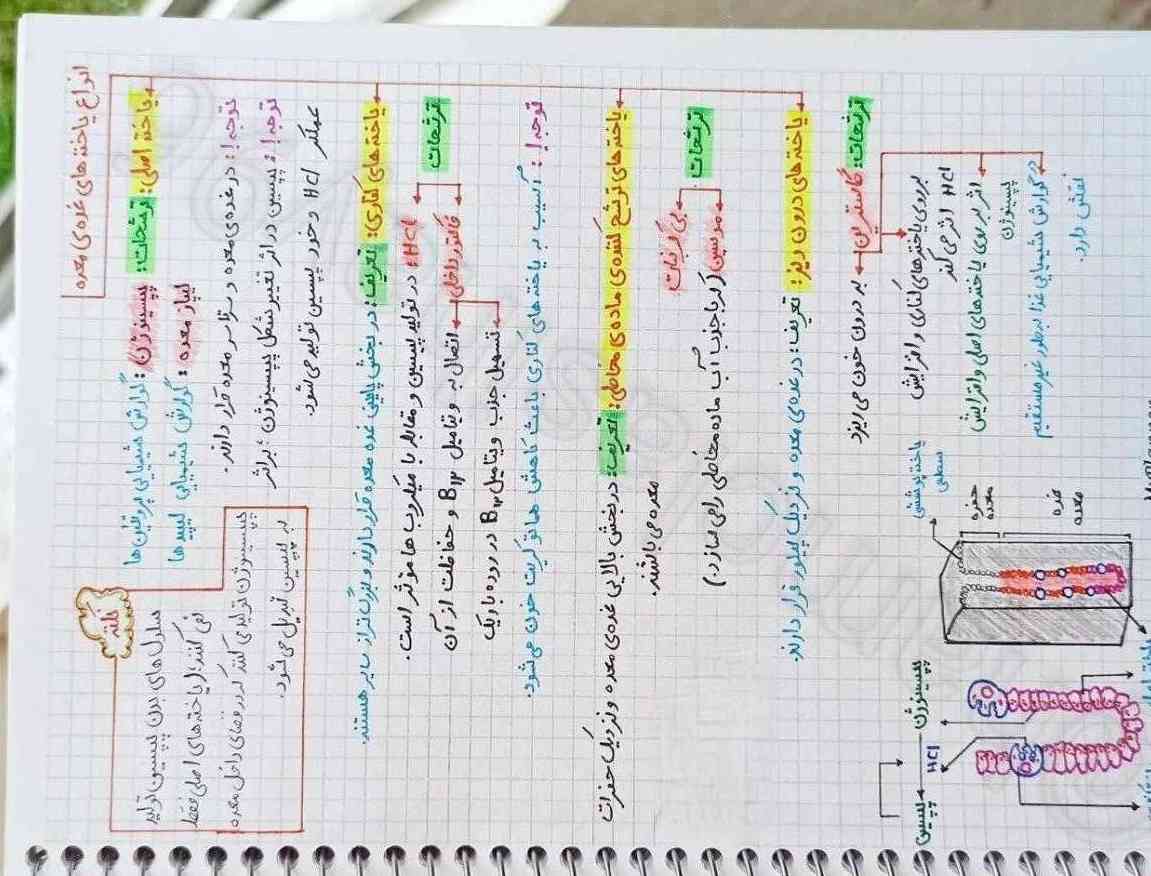 انواع یاخته‌های غده‌ی معده
یاخته اصلی: ترشحات: پپسینوژن: گوارش شیمیایی پروتئین‌ها
لیپاز معده: گوارش شیمیایی لیپیدها
توجه!: در غده‌ی معده و سرتاسر معده قرار دارند.
توجه!: پپسین در اثر تغییر شکل پپسینوژن؛ براثر
عملکرد HCl و خود پپسین تولید می‌شود.
نکته
سلول‌های بدن پپسین تولید
نمی‌کنند؛ (یاخته‌های اصلی فقط
پپسینوژن تولید می‌کنند که در فضای داخل معده
به پپسین تبدیل می‌شود.
یاخته‌های کناری: تعریف: در بخش پایینی غده معده قرار دارند و بزرگ‌تر از سایر هستند.
ترشحات
HCl: در تولید پپسین و مقابله با میکروب‌ها مؤثر است.
فاکتور داخلی
اتصال به ویتامین B۱۲ و حفاظت از آن
تسهیل جذب ویتامین B۱۲ در روده باریک
توجه!: آسیب به یاخته‌های کناری باعث کاهش هماتوکریت خون می‌شود.
یاخته‌های ترشح کننده‌ی ماده‌ی مخاطی: تعریف: در بخش بالایی غده‌ی معده و نزدیک حفرات
معده می‌باشند.
ترشحات
موسین (که با جذب آب ماده مخاطی را می‌سازد.)
بی‌کربنات
یاخته‌های درون ریز: تعریف: در غده‌ی معده و نزدیک پیلور قرار دارند.
ترشحات: گاسترین
به درون خون می‌ریزد
برروی یاخته‌های کناری و افزایش
HCl اثر می‌کند
اثر بر روی یاخته‌های اصلی و افزایش
پپسینوژن
در گوارش شیمیایی غذا به‌طور غیرمستقیم
نقش دارد.
یاخته پوششی
سطحی
حفره
معده
غده
معده
پپسینوژن
HCl
پپسین